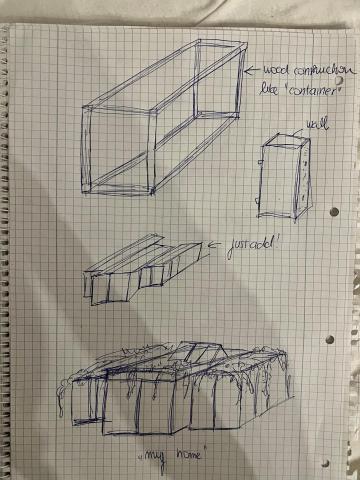 wood construction
like "container"
wall
just add!
„my home"